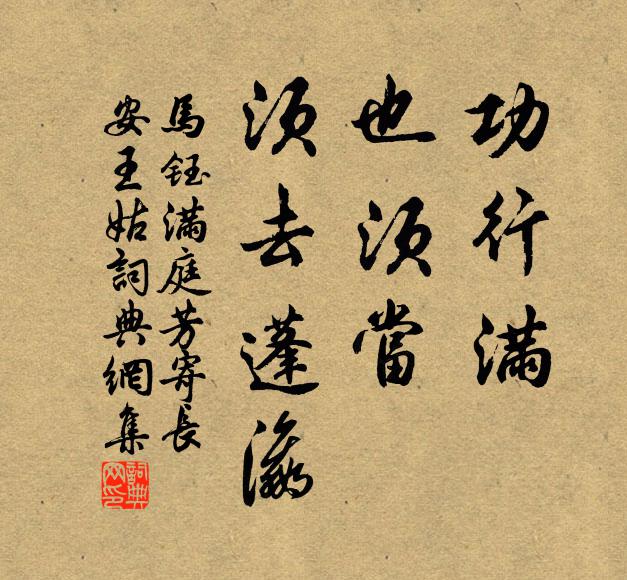 功行滿
也須當
須去蓬瀛
馬鈺滿庭芳寄長
安王姑詞典網集
詞典网印